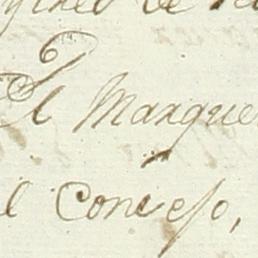 de
El Marque
l Concejo,